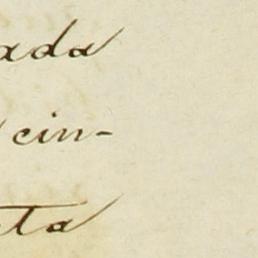 ada
cin-
ta